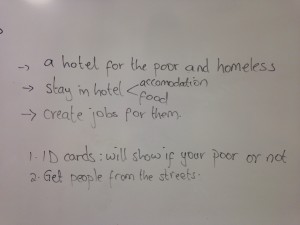 → a hotel for the poor and homeless
→ stay in hotel < accomodation
food
→ create jobs for them.
1. ID cards: will show if your poor or not
2. Get people from the streets.